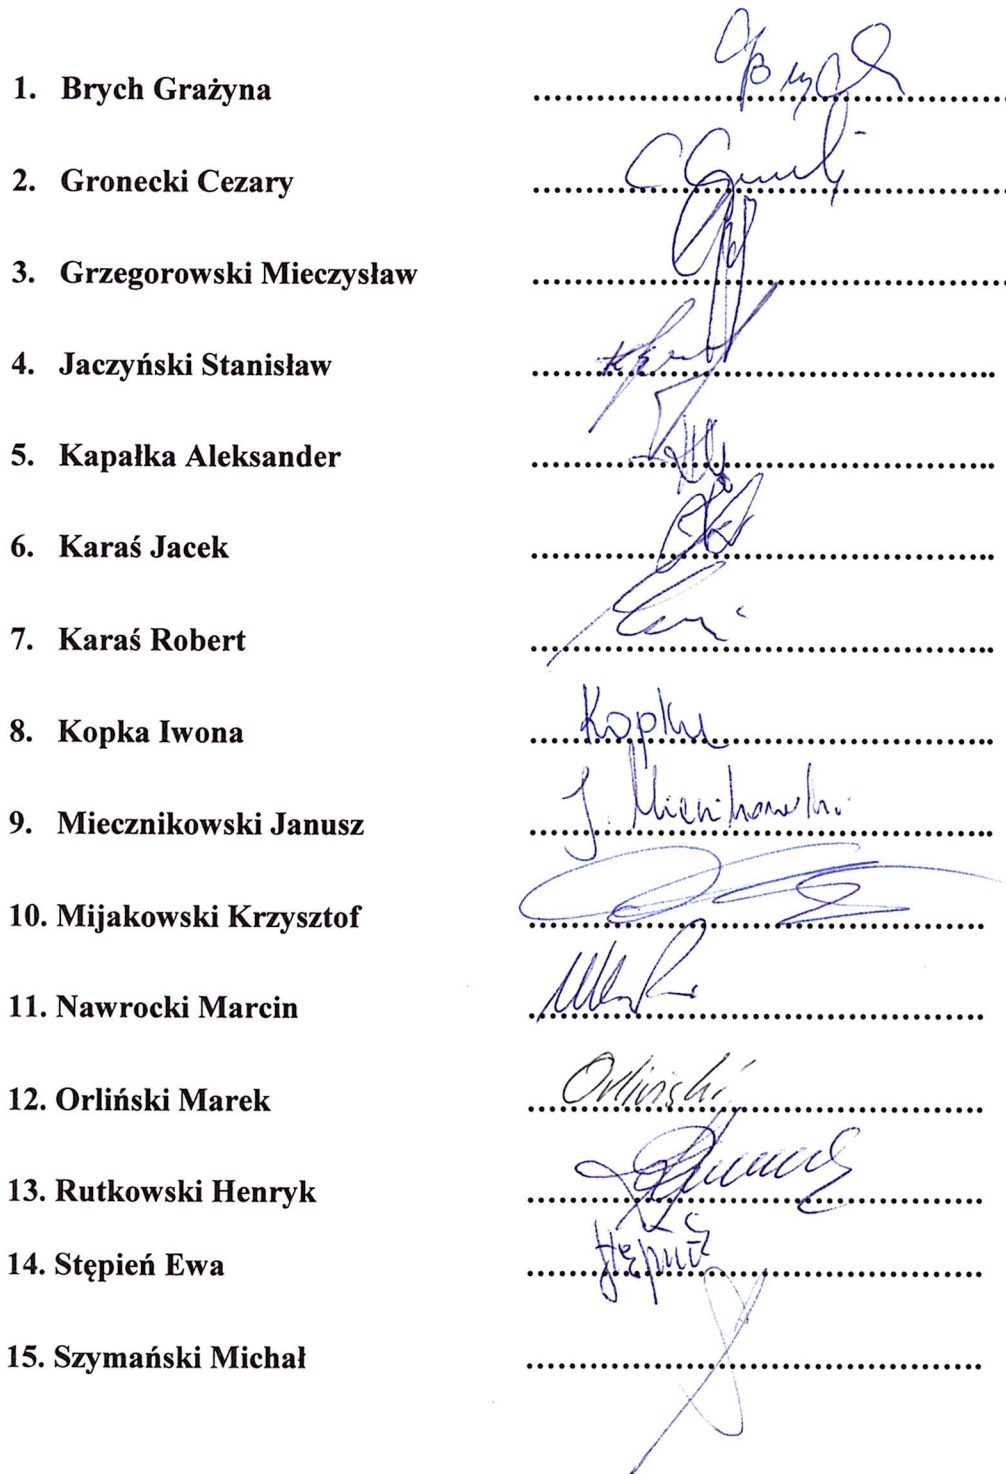 1. Brych Grażyna ........................................
2. Gronecki Cezary ........................................
3. Grzegorowski Mieczysław ........................................
4. Jaczyński Stanisław ........................................
5. Kapałka Aleksander ........................................
6. Karaś Jacek ........................................
7. Karaś Robert ........................................
8. Kopka Iwona Kopka
9. Miecznikowski Janusz J. Miecznikowski
10. Mijakowski Krzysztof ........................................
11. Nawrocki Marcin ........................................
12. Orliński Marek Orliński
13. Rutkowski Henryk ........................................
14. Stępień Ewa Stępień
15. Szymański Michał ........................................